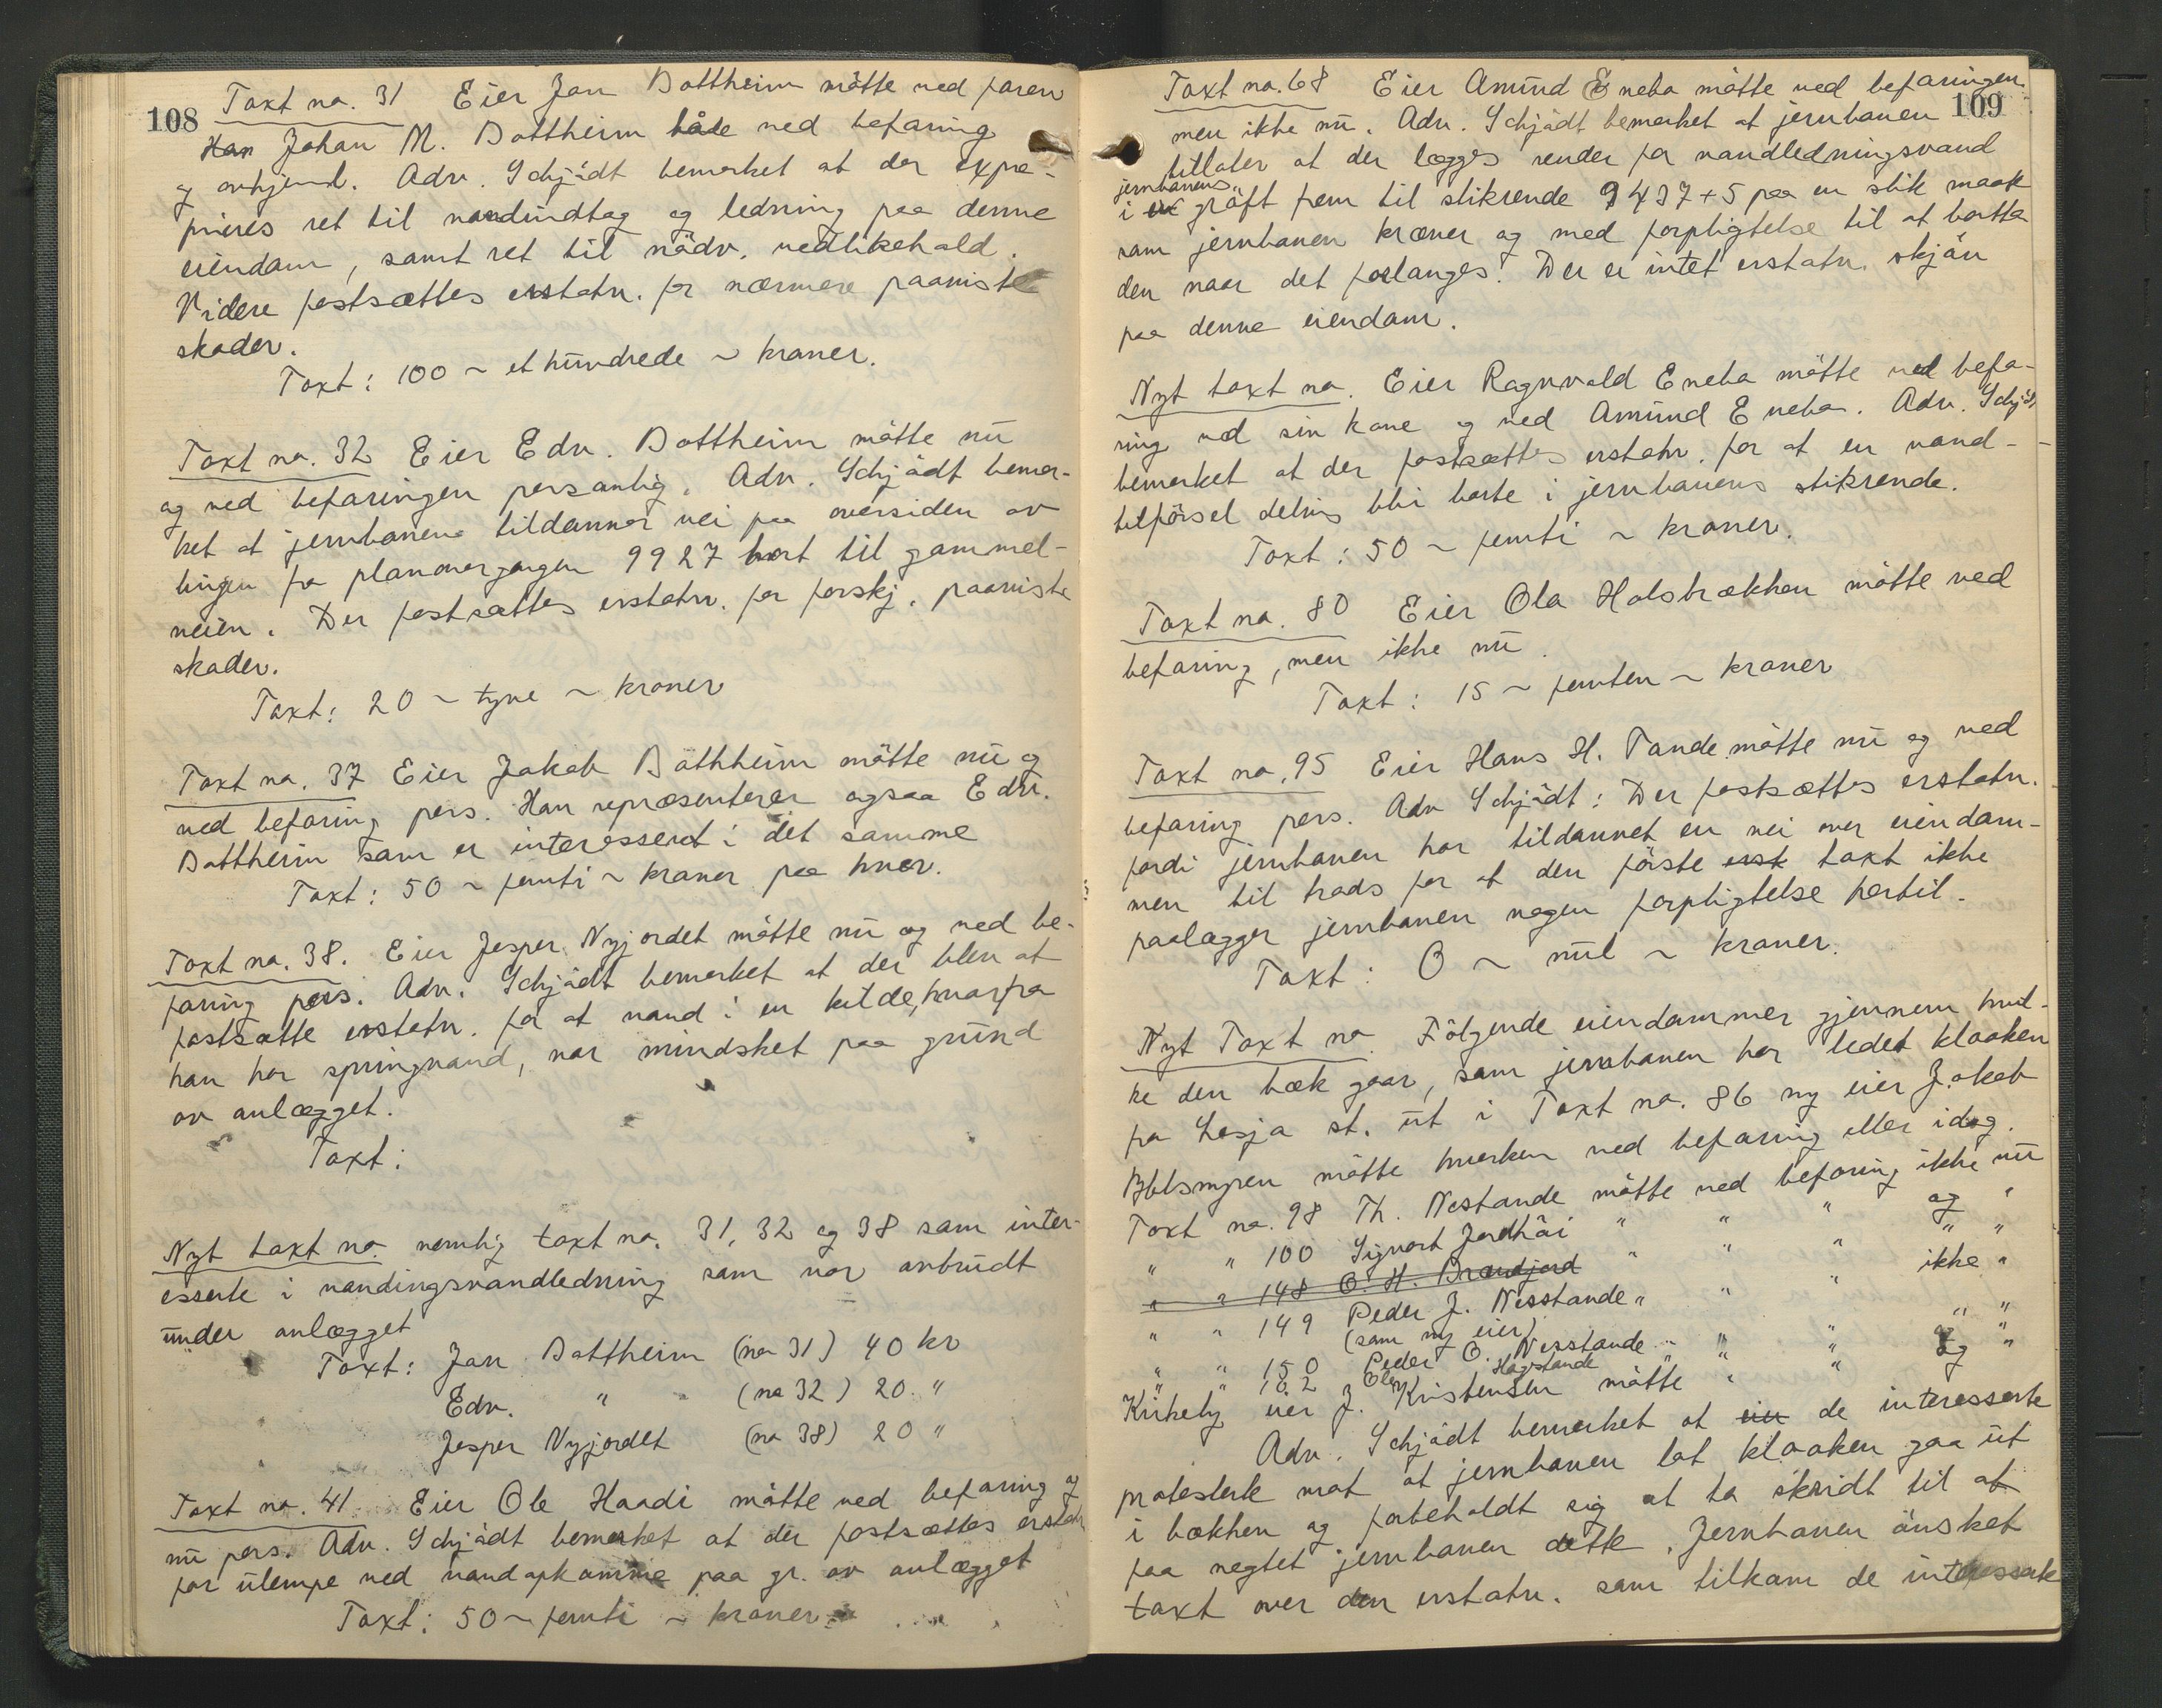 108
Taxt no. 31 Eier Jon Bottheim mötte ved faren
Han Johan M. Bottheim både ved befaring
og avhjeml. Adv. Schjödt bemerket at der expro-
prieres ret til vandindtag og ledning paa denne
eiendom, samt ret til nödv. vedlikehold.
Videre fastsættes erstatn. for nærmere paaviste
skader.
Taxt: 100 ~ et hundrede ~ kroner.
Taxt no. 32 Eier Edv. Bottheim mötte nu
og ved befaringen personlig. Adv. Schjödt bemer-
ket at jernbanen tildanner vei paa oversiden av
linjen fra planovergangen 9927 bort til gammel-
veien. Der fastsættes erstatn. for forskj. paaviste
skader.
Taxt: 20 ~ tyve ~ kroner
Taxt no. 37 Eier Jakob Bottheim mötte nu og
ved befaring pers. Han repræsenterer ogsaa Edv.
Bottheim som er interessert i det samme
Taxt: 50 ~ femti ~ kroner paa hver.
Taxt no. 38. Eier Jesper Nyjordet mötte nu og ved be-
faring pers. Adv. Schjödt bemerket at der blev at
fastsætte erstatn. for at vand i en kilde, hvorfra
han har springvand, var mindsket paa grund
av anlægget.
Taxt:
Nyt taxt no. nemlig taxt no. 31, 32 og 38 som inter-
esserte i vandingsvandledning som var avbrudt
under anlægget
Taxt: Jon Bottheim (no 31) 40 kr
Edv. " (no 32) 20 "
Jesper Nyjordet (no 38) 20 "
Taxt no. 41. Eier Ole Haadi mötte ved befaring og
nu pers. Adv. Schjödt bemerket at der fastsættes erstatn
for ulempe ved vandopkomme paa gr. av anlægget
Taxt: 50 ~ femti ~ kroner
109
Taxt no. 68 Eier Amund Enebo mötte ved befaringen
men ikke nu. Adv. Schjödt bemerket at jernbanen
tillater at der lægges render for vandledningsvand
jernbanens
i gröft frem til stikrende 9437+5 paa en slik maate
som jernbanen kræver og med forpligtelse til at bortta
den naar det forlanges. Der er intet erstatn. skjön
paa denne eiendom.
Nyt taxt no. Eier Ragnvald Enebo mötte ved befa-
ring ved sin kone og ved Amund Enebo. Adv. Schjödt
bemerket at der fastsættes erstatn. for at en vand-
tilförsel delvis blir borte i jernbanens stikrende.
Taxt: 50 ~ femti ~ kroner.
Taxt no. 80 Eier Ola Holsbrækken mötte ved
befaring, men ikke nu.
Taxt: 15 ~ femten ~ kroner
Taxt no. 95 Eier Hans H. Tande mötte nu og ved
befaring pers. Adv Schjödt: Der fastsættes erstatn.
fordi jernbanen har tildannet en vei over eiendom-
men til trods for at den förste erst taxt ikke
paalægger jernbanen nogen forpligtelse hertil.
Taxt: 0 ~ nul ~ kroner.
Nyt Taxt no. Fölgende eiendommer gjennem hvil-
ke den bæk gaar, som jernbanen har ledet kloaken
fra Lesja st. ut i Taxt no. 86 ny eier Jakob
mötte hverken ved befaring eller idag.
Taxt no. 98 Th. Nestande mötte ved befaring ikke nu
" " 100 Sigvart Jordhöi " " " og "
" " 148 O. H. Brandjord " " " " "
" " 149 Peder J. Nesstande " " " ikke "
(som ny eier)
" " 150 Peder O. Nesstande " " " " "
" " 102 Ole Hagstande " " " og "
Kirkeby eier J. Kristensen mötte " "
Adv. Schjödt bemerket at eier de interesserte
protesterte mot at jernbanen lot kloaken gaa ut
i bækken og forbeholdt sig at ta skridt til at
faa negtet jernbanen dette. Jernbanen önsket
taxt over den erstatn. som tilkom de interesserte